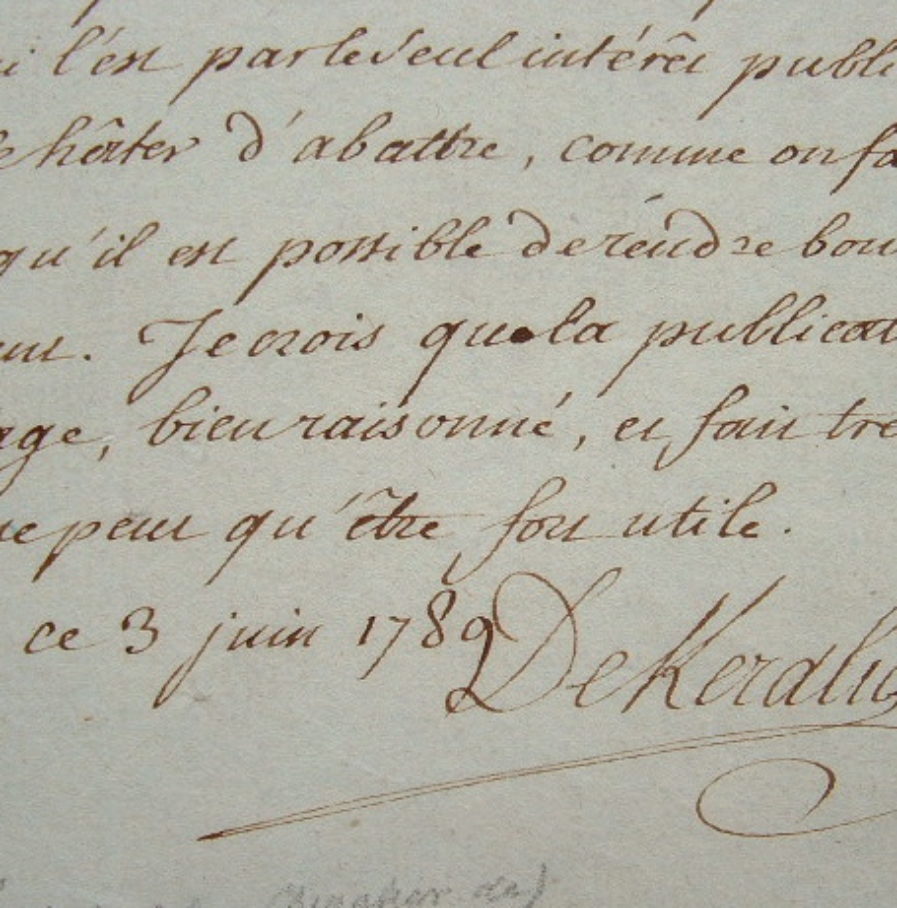 l'est par le seul intérêt publi
hâter d'abattre, comme on fa
qu'il est possible de réndre bon
. Je crois que la publicat
age, bien raisonné, et fait tre
ne peut qu'être fort utile.
ce 3 juin 1789 De Keralio